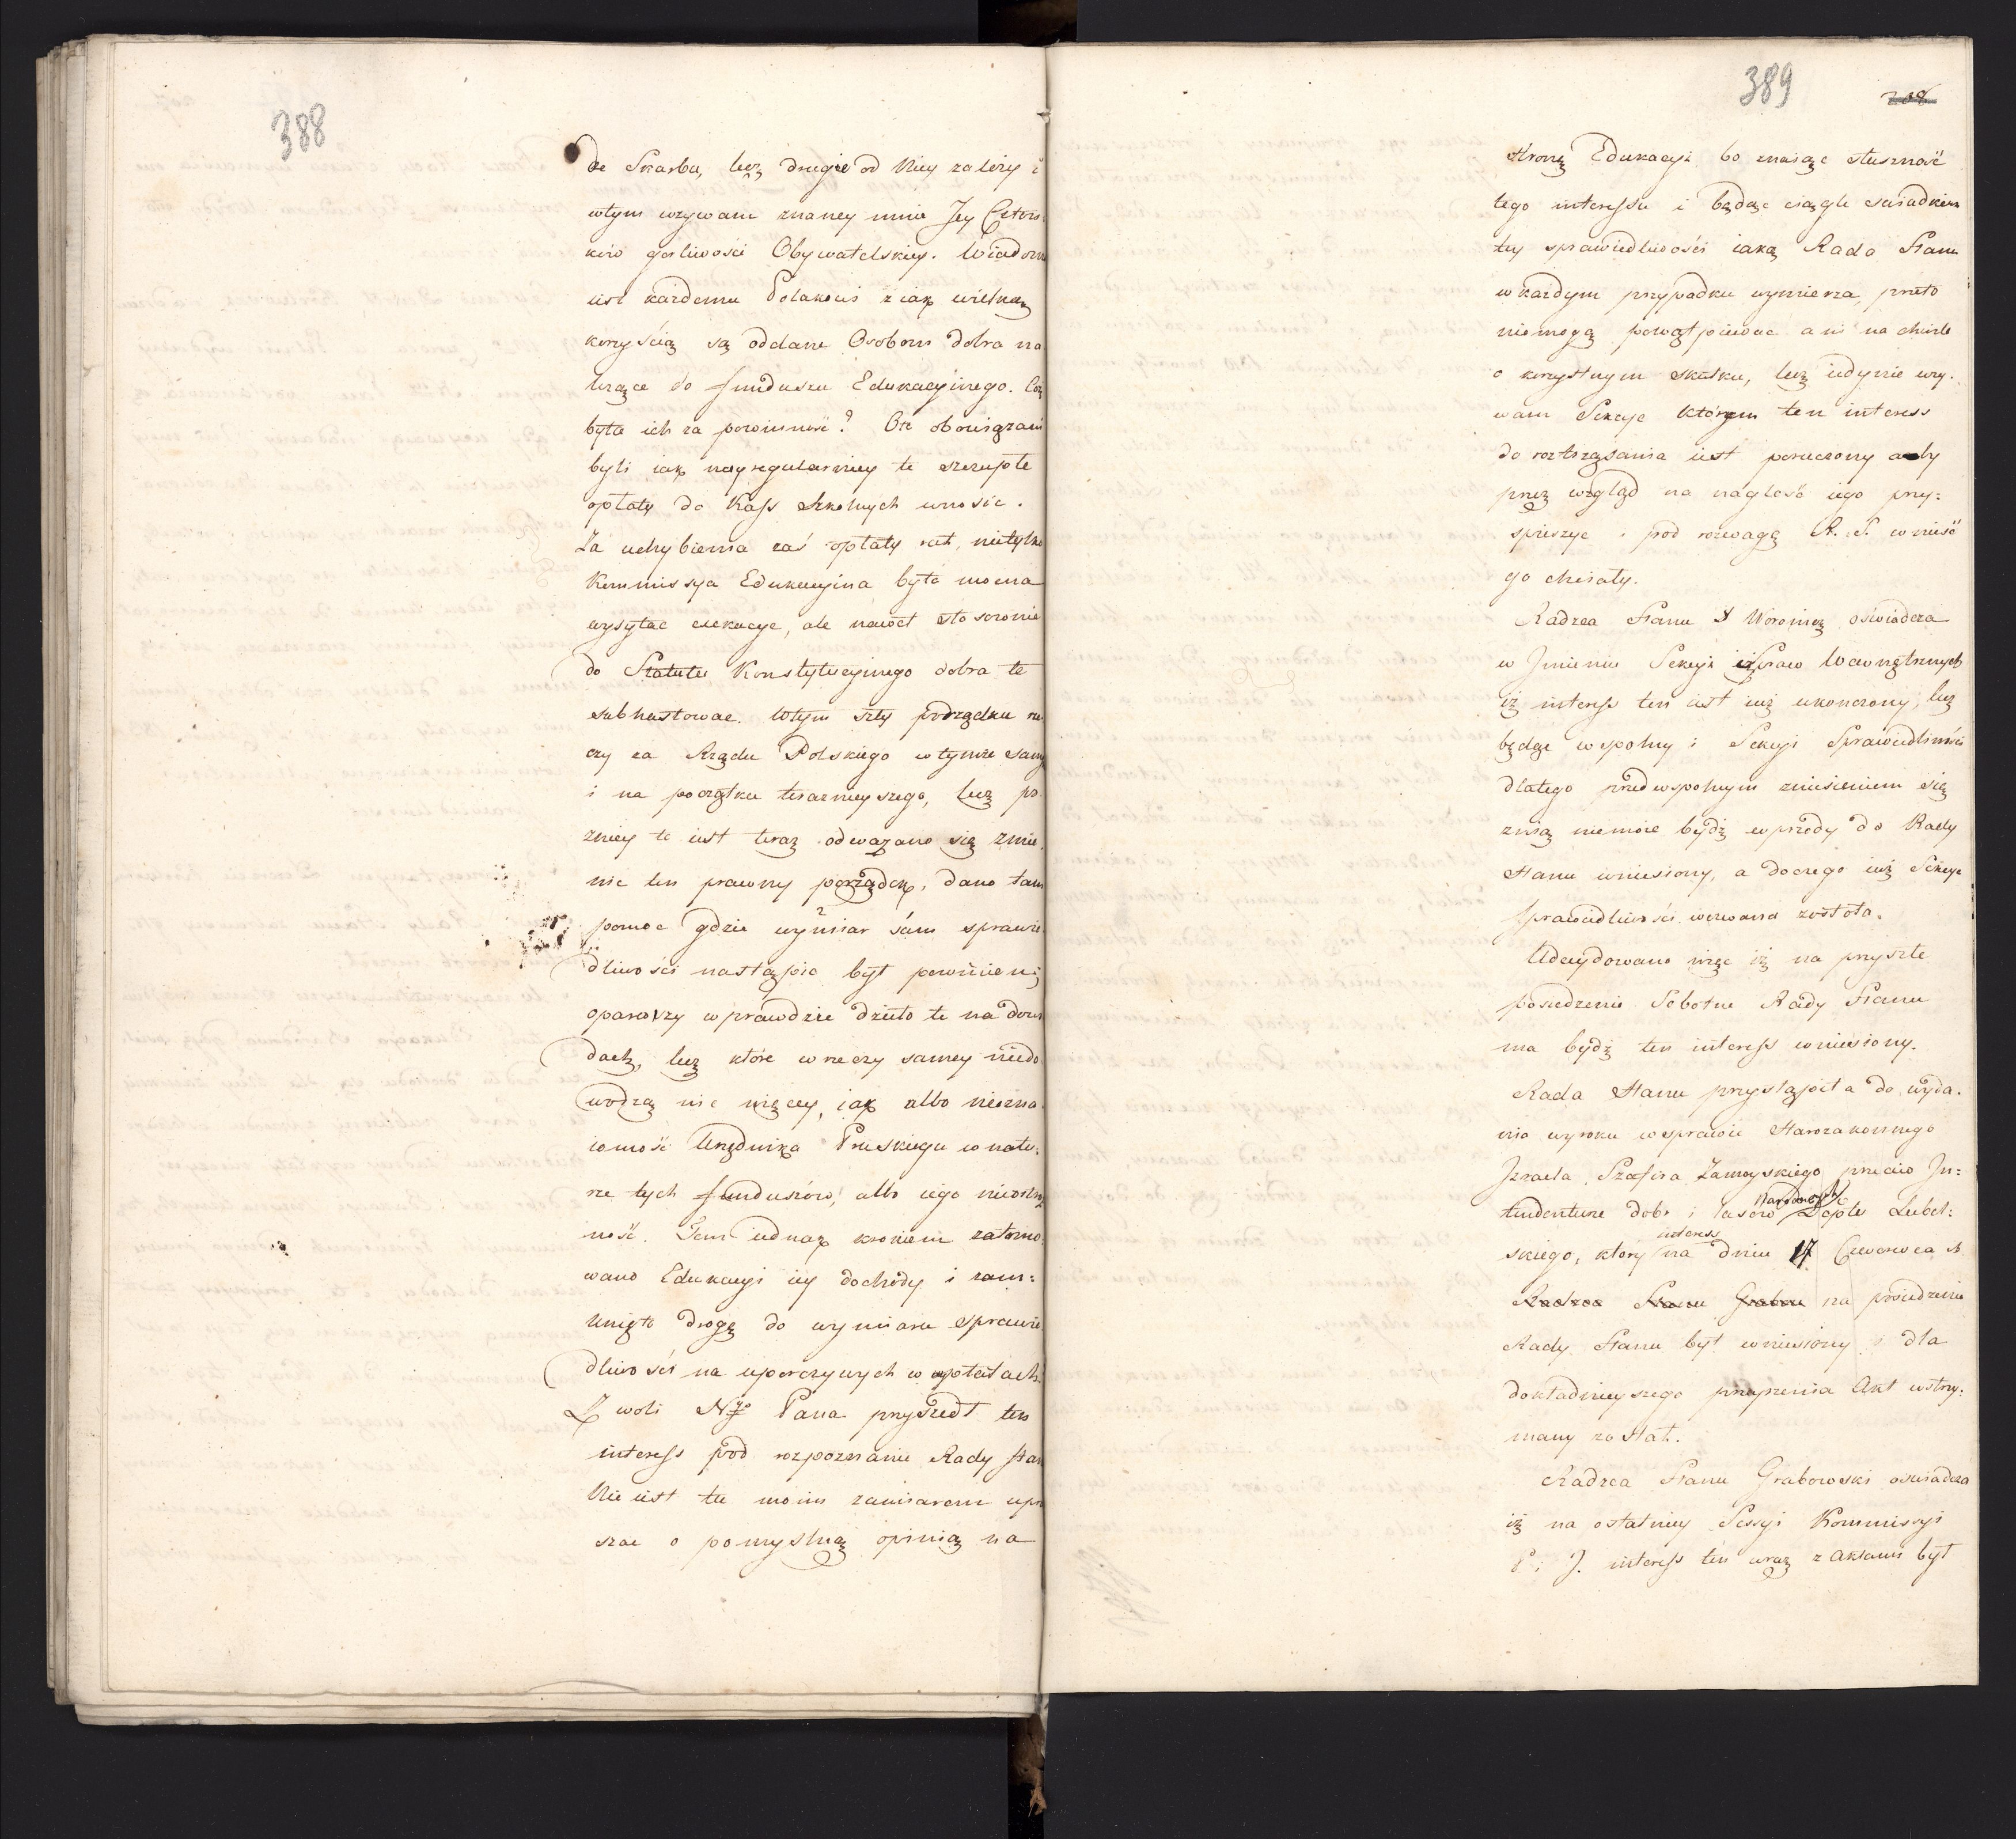 388
de Skarbu, lecz drugie od Niey zależy i
wtym wzywam znaney mnie Jey Człon
ków gorliwości Obywatelskiey. Wiadomo
iest każdemu Polakowi z iak wielką
korzyścią są oddane Osobom dobra na
leżące do funduszu Edukacyinego. Coż
była ich za powinność? Oto obowiązani
byli iak nayregularniey te szczupłe
opłaty do Kass szkolnych wnosić.
Za uchybienia zaś opłaty rat, nietylko
Kommissya Edukacyina była mocna
wysyłać exekucye, ale nawet stosownie
do Statutu Konstytucyinego dobra te
subhastować. Wtym szły porządku rze
czy za Rządu Polskiego wtymże samym
i na początku teraznieyszego, lecz po
zniey to iest teraz odważano się zmie
nić ten prawny porządek, dano tam
pomoc gdzie wymiar sam sprawie
dliwości nastąpić był powinien;
oparoszy wprawdzie dzieło to na dowo
dach, lecz które w rzeczy samey niedo
wodzą nic więcey, iak albo niezna
iomość Urzędnika Pruskiego w natu:
rze tych funduszów, albo iego nieostroż
ność. Tem iednak krokiem zatamo
wano Edukacyi iey dochody i zam:
knięto drogę do wymiaru sprawie
dliwości na uporczywych w opłatach.
Z woli N<sup>go</sup> Pana przyszedł ten
interess pod rozpoznanie Rady Stan
Nie iest tu moim zamiarem upra
szać o pomyślną opinią na
389
208
stronę Edukacyi, bo znaiąc słuszność
tego interessu i będąc ciągle świadkiem
tey sprawiedliwości iaką Rada Stanu
w każdym przypadku wymierza, przeto
niemogę powątpiewać ani na chwile
o korzystnym skutku, lecz iedynie wzy.
wam Sekcye którym ten interess
do roztrząsania iest poruczony aby
przez wzgląd na nagłość iego przy:
spieszyć i pod rozwagę R. S. wnieść
go chciały.
Radzca Stanu X Woronicz oświadcza
w Jmieniu Sekcyi Spraw Wewnętrznych
iż interess ten iest iuż ukończony, lecz
będąc wspólny i Sekcyi Sprawiedliwości
dlatego przed wspólnym zniesieniem się
znią niemoże bydź wprzody do Rady
Stanu wniesiony, a doczego iuż Sekcya
Sprawiedliwości wezwana została.
Udecydowano więc iż na przyszłe
posiedzenie Sobotne Rady Stanu
ma bydź ten interess wniesiony.
Rada Stanu przystąpiła do wyda.
nia wyroku wsprawie Starozakonnego
Jzraela Szafira Zamoyskiego przeciw Jn:
tendenturze dóbr i lasów Narodowych Deptu Lubel:
skiego, który interess na dniu 17 Czerwca r.
Radzca Stanu Grabow na posiedzeniu
Rady Stanu był wniesiony i dla
dokładnieyszego przeyrzenia Akt wstrzy:
many został.
Radzca Stanu Grabowski oświadcza
iż na ostatniey Sessyi Kommissyi
P: J. interess ten wraz z aktami był